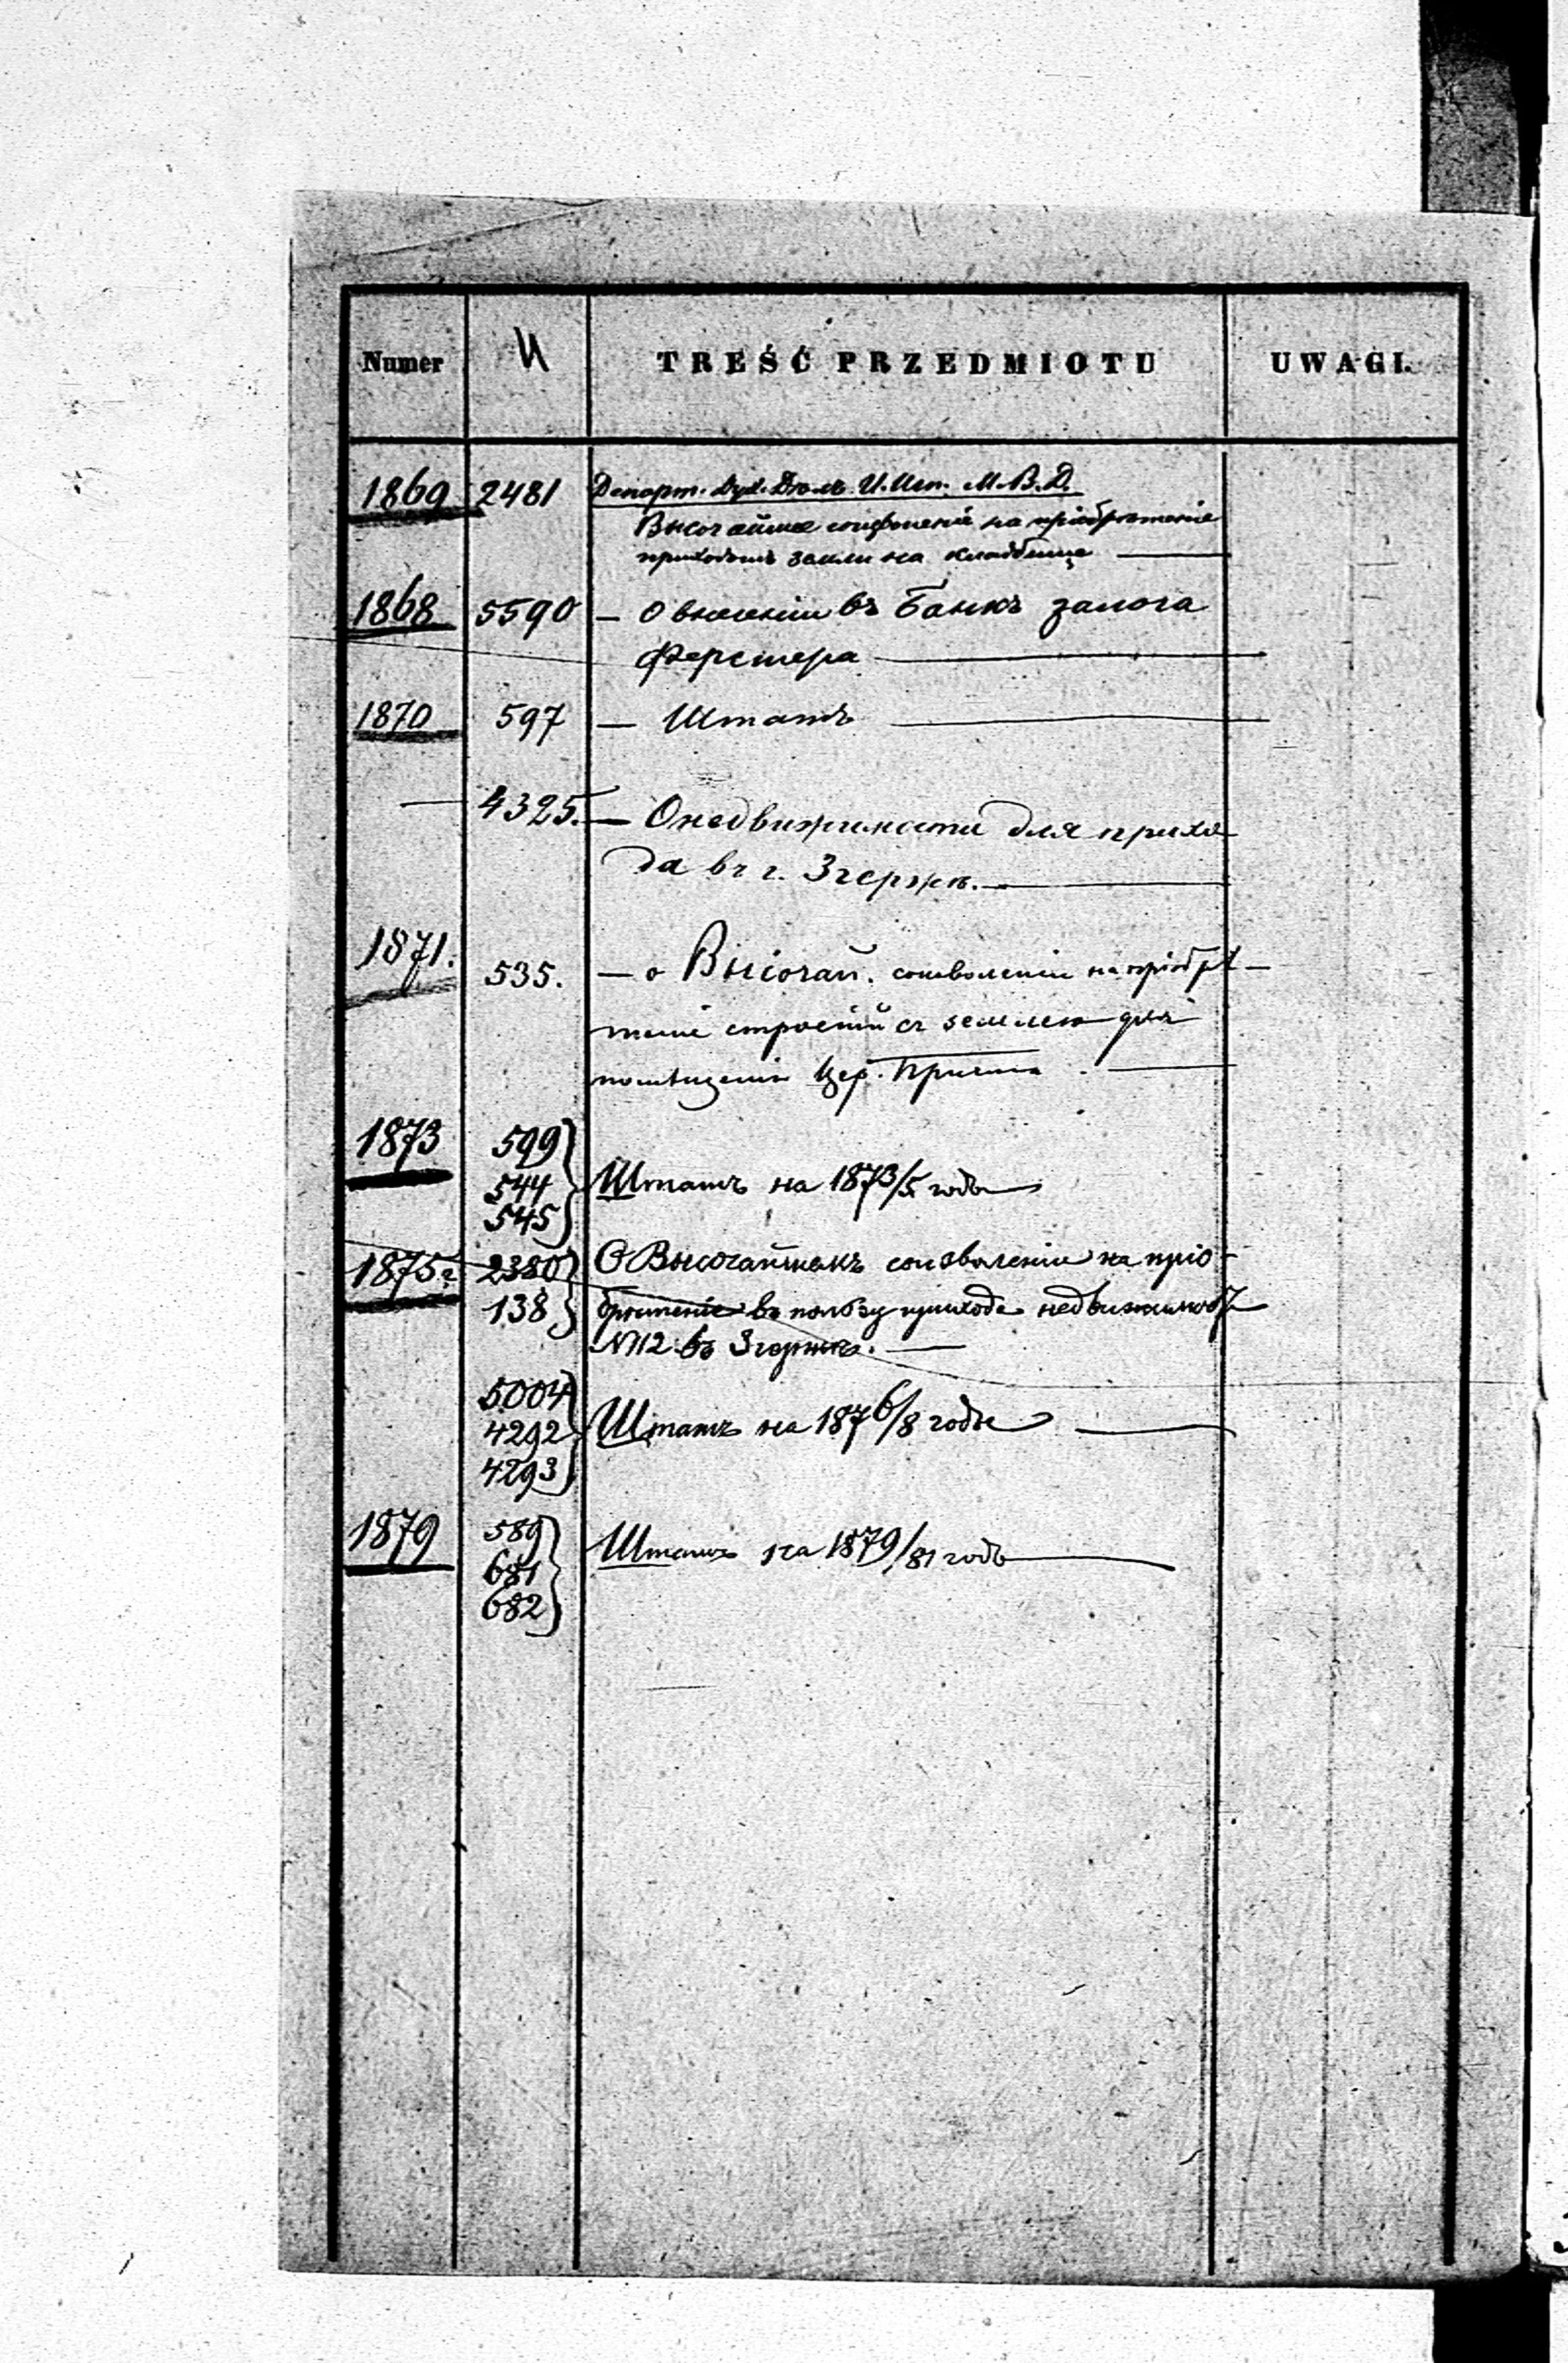 Numer И TREŚĆ PRZEDMIOTU UWAGI.
1869 2481 Департ. Дух. Дѣлъ И. Исп. М.В.Д.
Высочайшее на пріобрѣтеніе
приходомъ земли на кладбище
1868 5590 — О внесеніи въ Банкъ залога
Ферстера
1870 597 — Штатъ
— 4325. — О недвижимости для прихо
да въ г. Згержѣ.
1871. 535. — о Высочай. соизволеніи на пріобрѣ—
теніе строеній съ землею для
помѣщенія Цер. Причта
1873 599
544 Штатъ на 1873/5 годы
545
1875г 2380 О Высочайшемъ соизволеніи на прі​о-
138 брѣтеніе въ пользу прихода недвижимост
N112 въ Згержѣ. —
5004
4292 Штатъ на 1876/8 годы
4293
1879 589
681 Штатъ на 1879/81 годъ
682